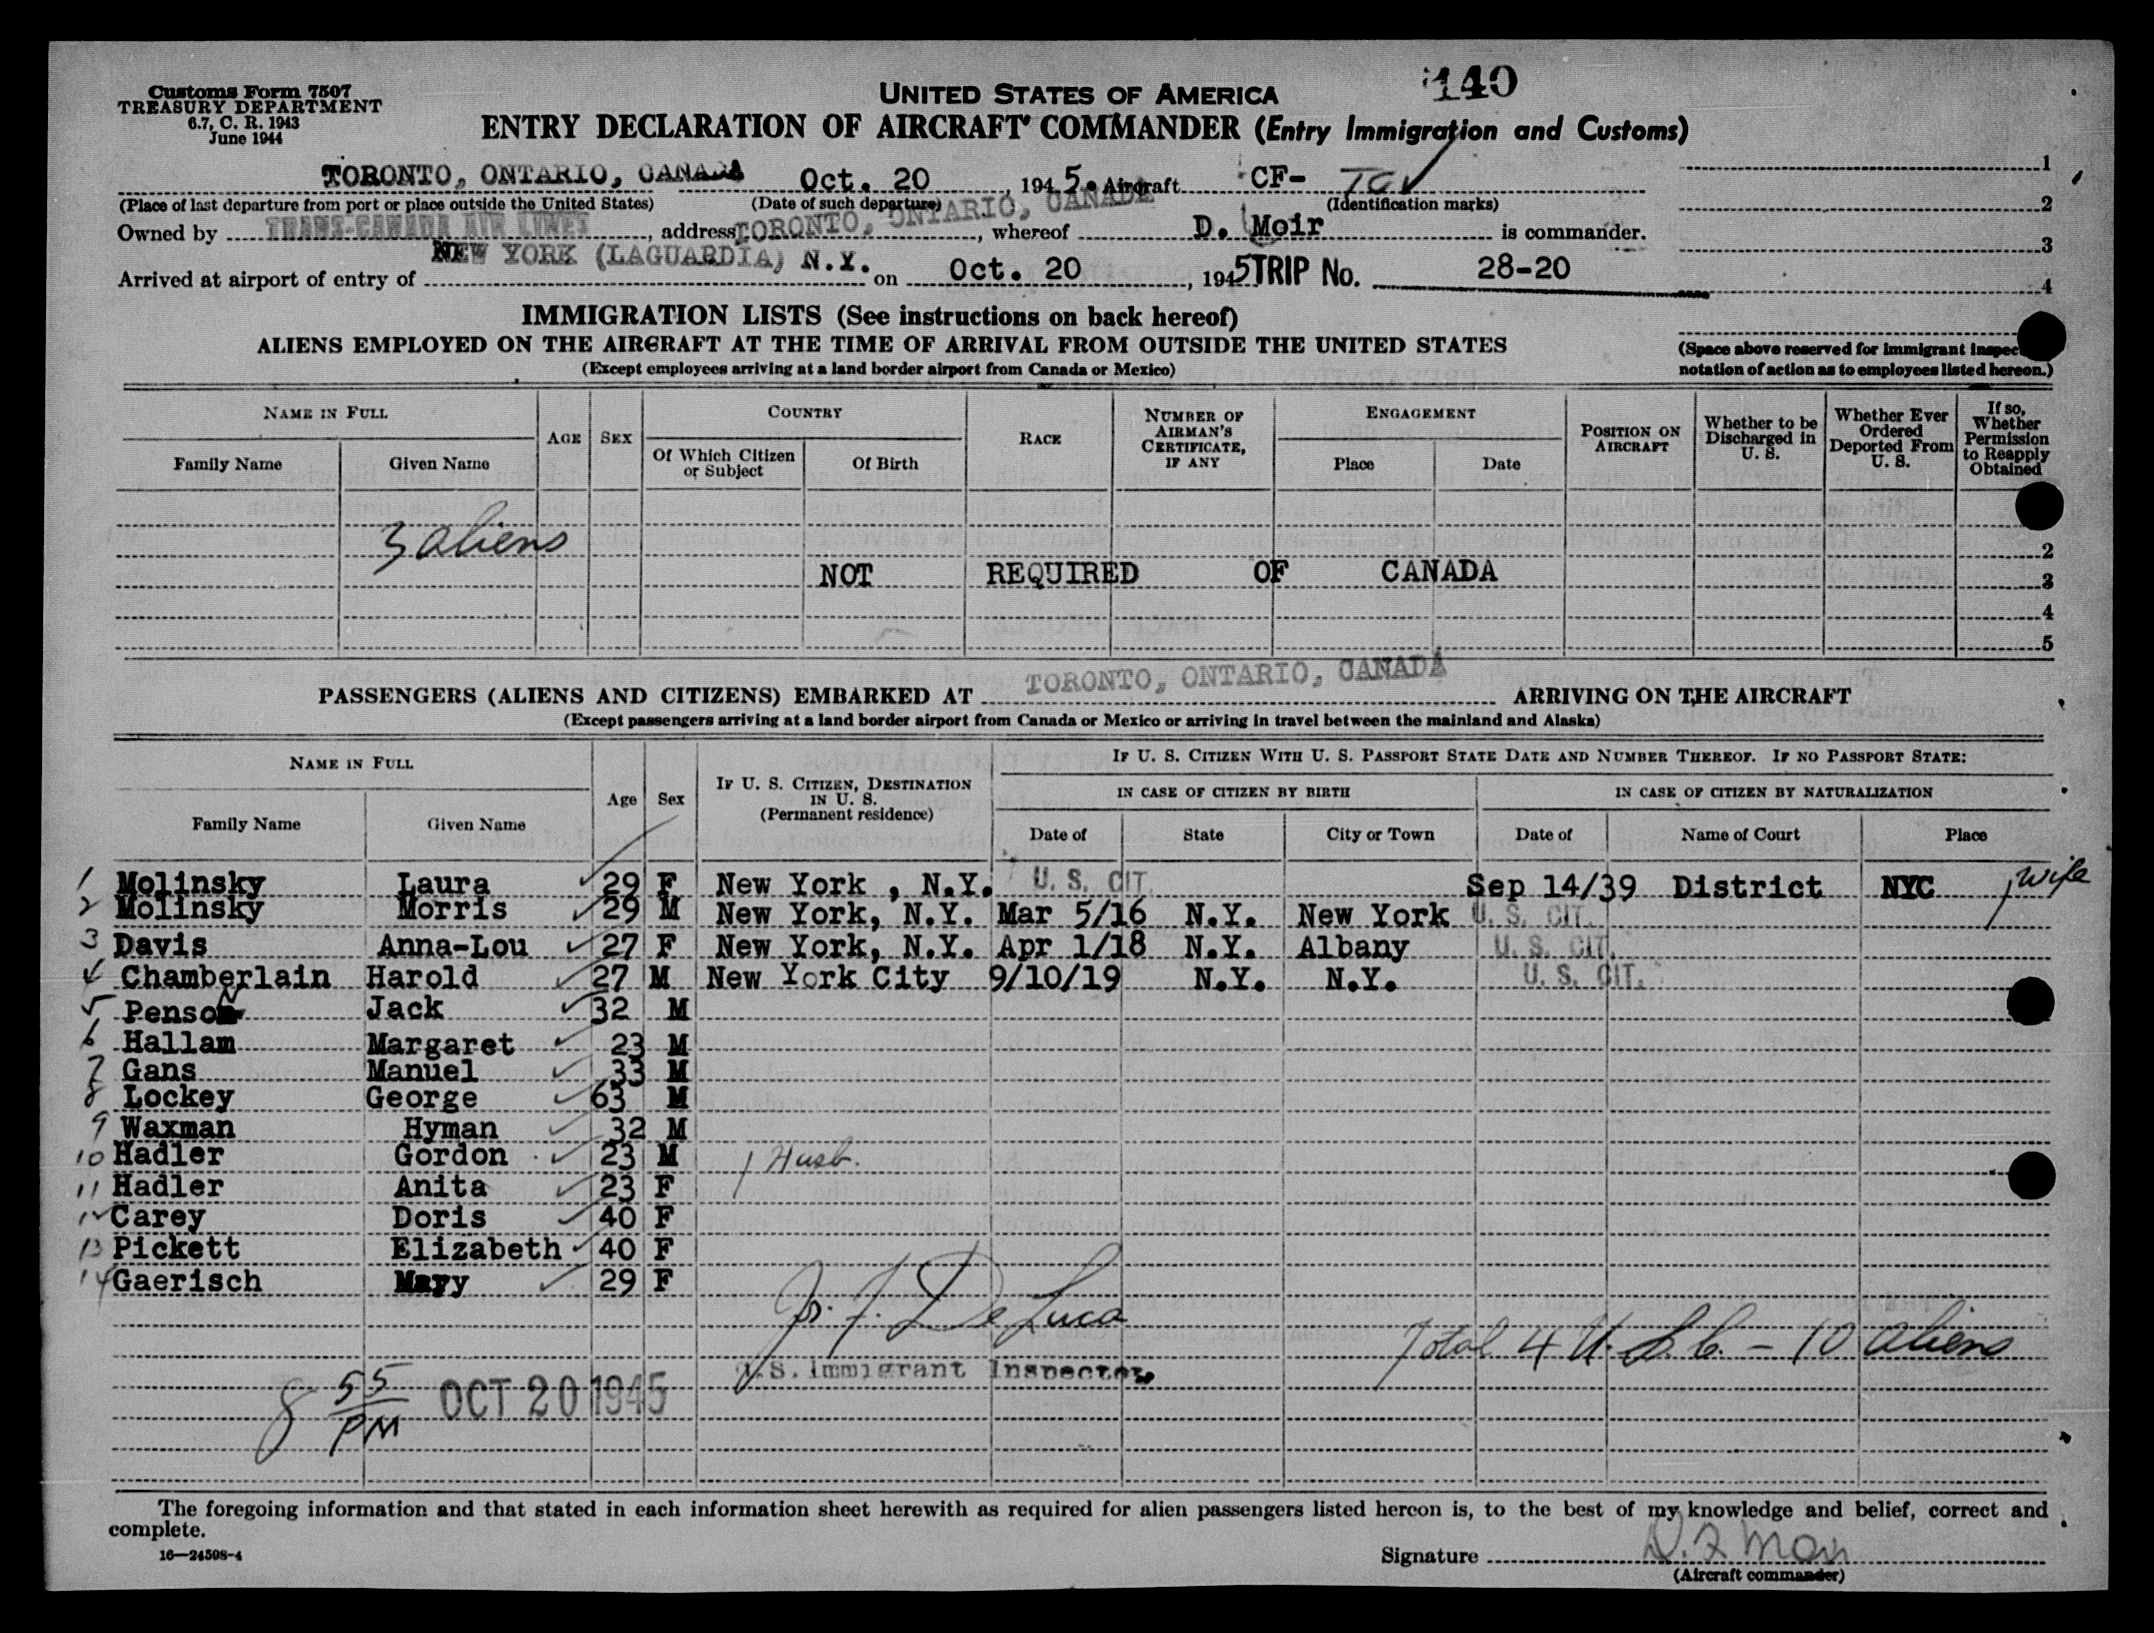 140
Customs Form 7507
TREASURY DEPARTMENT
6.7, C. R. 1943
June 1944
UNITED STATES OF AMERICA
ENTRY DECLARATION OF AIRCRAFT COMMANDER (Entry Immigration and Customs)
TORONTO, ONTARIO, CANADA Oct. 20, 1945. Aircraft CF- TCV 1
(Place of last departure from port or place outside the United States) (Date of such departure) (Identification marks)
2
Owned by TRANS-CANADA AIR LINES, address TORONTO, ONTARIO, CANADA, whereof D. Moir is commander.
3
Arrived at airport of entry of NEW YORK (LAGUARDIA) N.Y. on Oct. 20, 1945 TRIP No. 28-20
4
IMMIGRATION LISTS (See instructions on back hereof)
ALIENS EMPLOYED ON THE AIRCRAFT AT THE TIME OF ARRIVAL FROM OUTSIDE THE UNITED STATES
(Except employees arriving at a land border airport from Canada or Mexico)
(Space above reserved for immigrant inspec
notation of action as to employees listed hereon.)
NAME IN FULL AGE SEX COUNTRY RACE NUMBER OF AIRMAN'S CERTIFICATE, IF ANY ENGAGEMENT POSITION ON AIRCRAFT Whether to be Discharged in U. S. Whether Ever Ordered Deported From U. S. If so, Whether Permission to Reapply Obtained
Family Name Given Name Of Which Citizen or Subject Of Birth Place Date
3 aliens
2
NOT REQUIRED OF CANADA 3
4
5
PASSENGERS (ALIENS AND CITIZENS) EMBARKED AT TORONTO, ONTARIO, CANADA ARRIVING ON THE AIRCRAFT
(Except passengers arriving at a land border airport from Canada or Mexico or arriving in travel between the mainland and Alaska)
NAME IN FULL Age Sex IF U. S. CITIZEN, DESTINATION IN U. S. (Permanent residence) IF U. S. CITIZEN WITH U. S. PASSPORT STATE DATE AND NUMBER THEREOF. IF NO PASSPORT STATE:
IN CASE OF CITIZEN BY BIRTH IN CASE OF CITIZEN BY NATURALIZATION
Family Name Given Name Date of State City or Town Date of Name of Court Place
1 Molinsky Laura 29 F New York , N.Y. U. S. CIT. Sep 14/39 District NYC 1 wife
2 Molinsky Morris 29 M New York, N.Y. Mar 5/16 N.Y. New York U. S. CIT.
3 Davis Anna-Lou 27 F New York, N.Y. Apr 1/18 N.Y. Albany U. S. CIT.
4 Chamberlain Harold 27 M New York City 9/10/19 N.Y. N.Y. U. S. CIT.
5 Penson Jack 32 M
6 Hallam Margaret 23 M
7 Gans Manuel 33 M
8 Lockey George 63 M
9 Waxman Hyman 32 M
10 Hadler Gordon 23 M 1 Husb.
11 Hadler Anita 23 F
12 Carey Doris 40 F
13 Pickett Elizabeth 40 F
14 Gaerisch Mary 29 F
Jos. F. De Luca
U.S. Immigrant Inspector.
Total 4 U.S.C. - 10 aliens
8 55 PM OCT 20 1945
The foregoing information and that stated in each information sheet herewith as required for alien passengers listed hereon is, to the best of my knowledge and belief, correct and
complete.
16—24598-4
Signature D. F. Moir
(Aircraft commander)